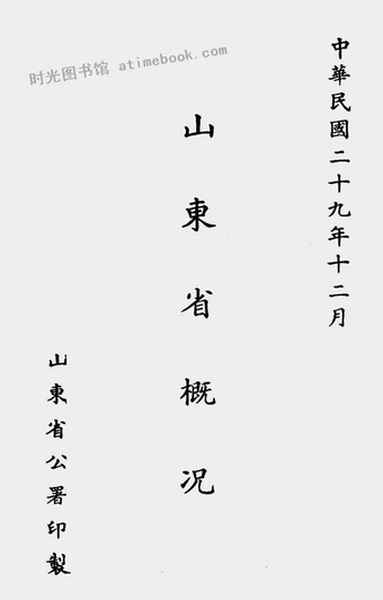 中華民國二十九年十二月
山東省概况
山東省公署印製
时光图书馆 atimebook.com